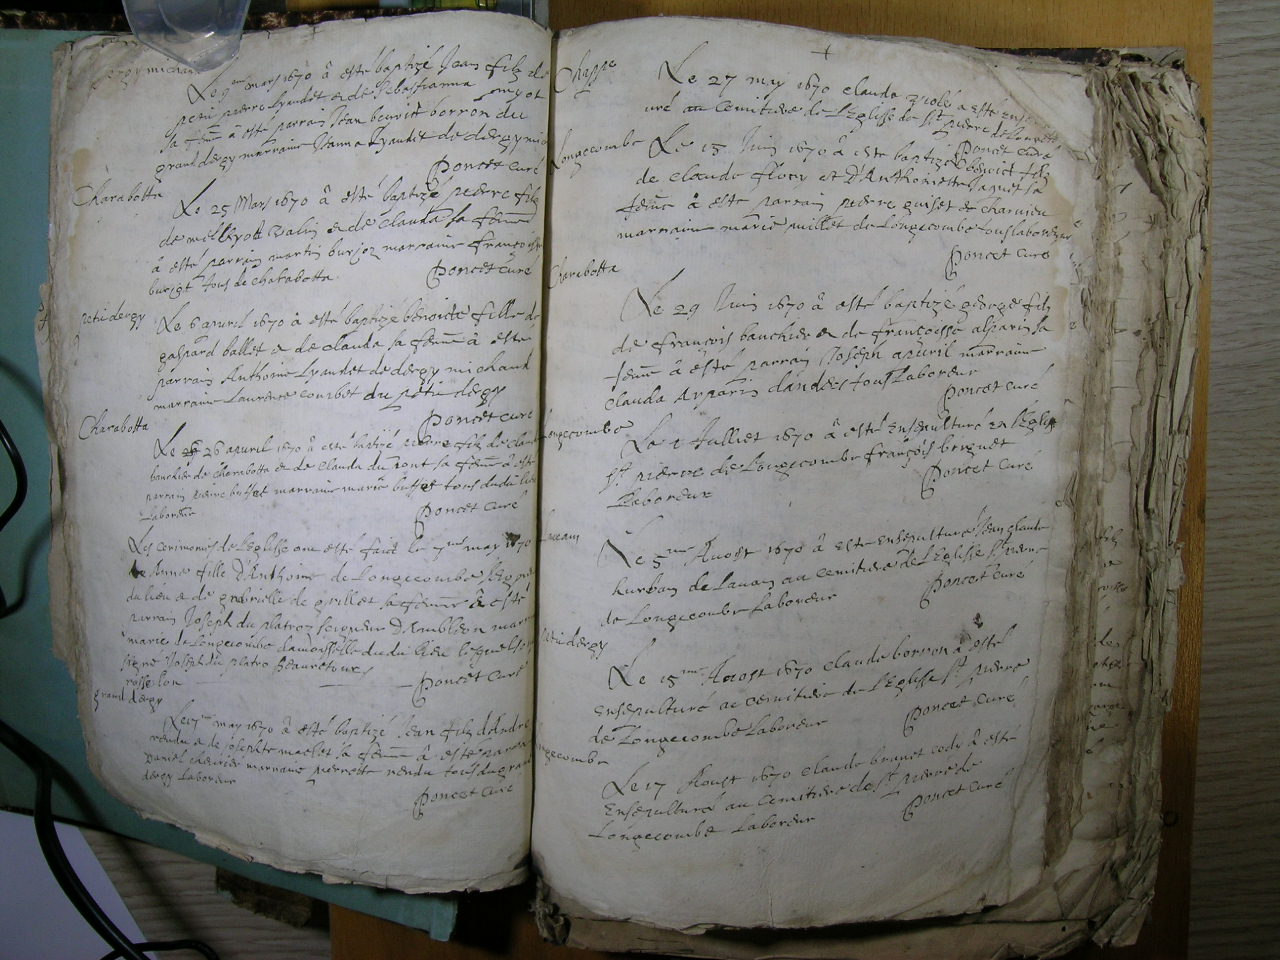 Le 9me mars 1670 à esté baptizé Jean filz de
feu pierre Lyaudet & de Sebastianna
sa feme à esté parrain Jean benoist borron du
grand dergy marraine Lyaudet de dergy
Poncet Curé
Charabotta
Le 25 Mars 1670 à esté baptizé pierre filz
de & de Clauda sa feme
à esté parrain martin burjoz marraine françoise
burjot tous de charabotta
Poncet Curé
petit dergy
Le 6 avvril 1670 à esté baptizé benoite fille de
gaspard ballet & de Clauda sa feme à esté
parrain Anthoine Lyaudet de dergy michaud
marraine Laurence courbet du petit dergy
Poncet Curé
Charabotta
Le 26 avvril 1670 à esté baptizé pierre filz de claude
banchier de charabotta & de Clauda du pont sa feme à esté
parrain pierre buffet marraine marie buffet tous dudit lieu
Laboreur
Poncet Curé
Les cerimonies de l'Eglise ont esté faict le 7me may 1670
de Anne fille D'Anthoine de Longecombe
du lieu & de gabrielle de grillet sa feme à esté
parrain Joseph du platroz seigneur D'Ambleon
marie de Longecombe damoiselle dudit lieu
signé Joseph du platro beauretour
rossellon
Poncet Curé
grand dergy
Le 17me may 1670 à esté baptizé Jean filz d'André
rendu & de Josephte machet sa feme à esté parrain
Daniel marraine pierrette rendu tous du grand
dergy Laboreur
Poncet Curé
Chappe
Le 27 may 1670 clauda à esté
au cemitiere de l'Eglise de St pierre de
Poncet Curé
Longecombe
Le 15 Juin 1670 à esté baptizé benoict filz
de claude et D'Anthoinette sa
feme à esté parrain pierre guiset de Charnieu
marraine marie millet de Longecombe tous laboreur
Poncet Curé
Charabotta
Le 29 Juin 1670 à esté baptizé george filz
de françois banchier & de françoise alparin sa
feme à esté parrain Joseph apvril marraine
Clauda Arparin d'andert tous Laboreur
Poncet Curé
Longecombe
Le 1 Julliet 1670 à esté Ensepulturé en l'Eglise
St pierre de Longecombe françois brunet
Laboreur
Poncet Curé
Le 5me Auost 1670 à esté Ensepulturé Jean claude
hurban de Lauan au cemitiere de l'Eglise St pierre
de Longecombe Laboreur
Poncet Curé
petit dergy
Le 15me Auost 1670 claude borron à esté
Ensepulturé au cemitiere de l'Eglise St pierre
de Longecombe Laboreur
Poncet Curé
Longecombe
Le 17 Auost 1670 claude brunet cody à esté
Ensepulturé au cemitiere de St pierre de
Longecombe Laboreur
Poncet Curé